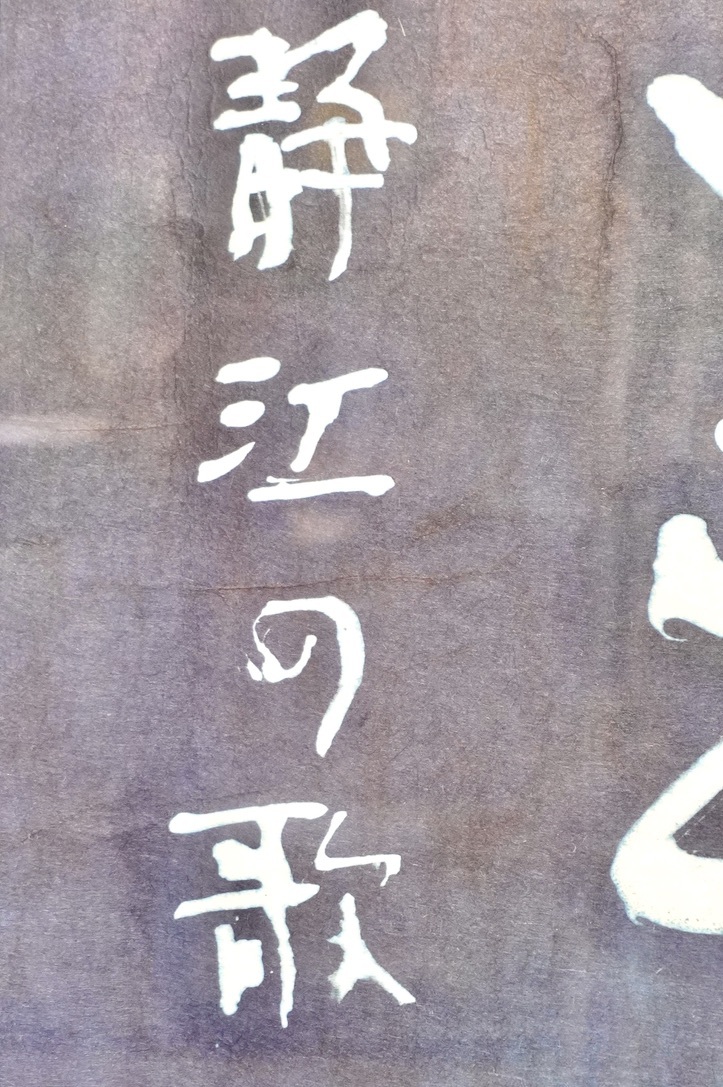 静江の歌